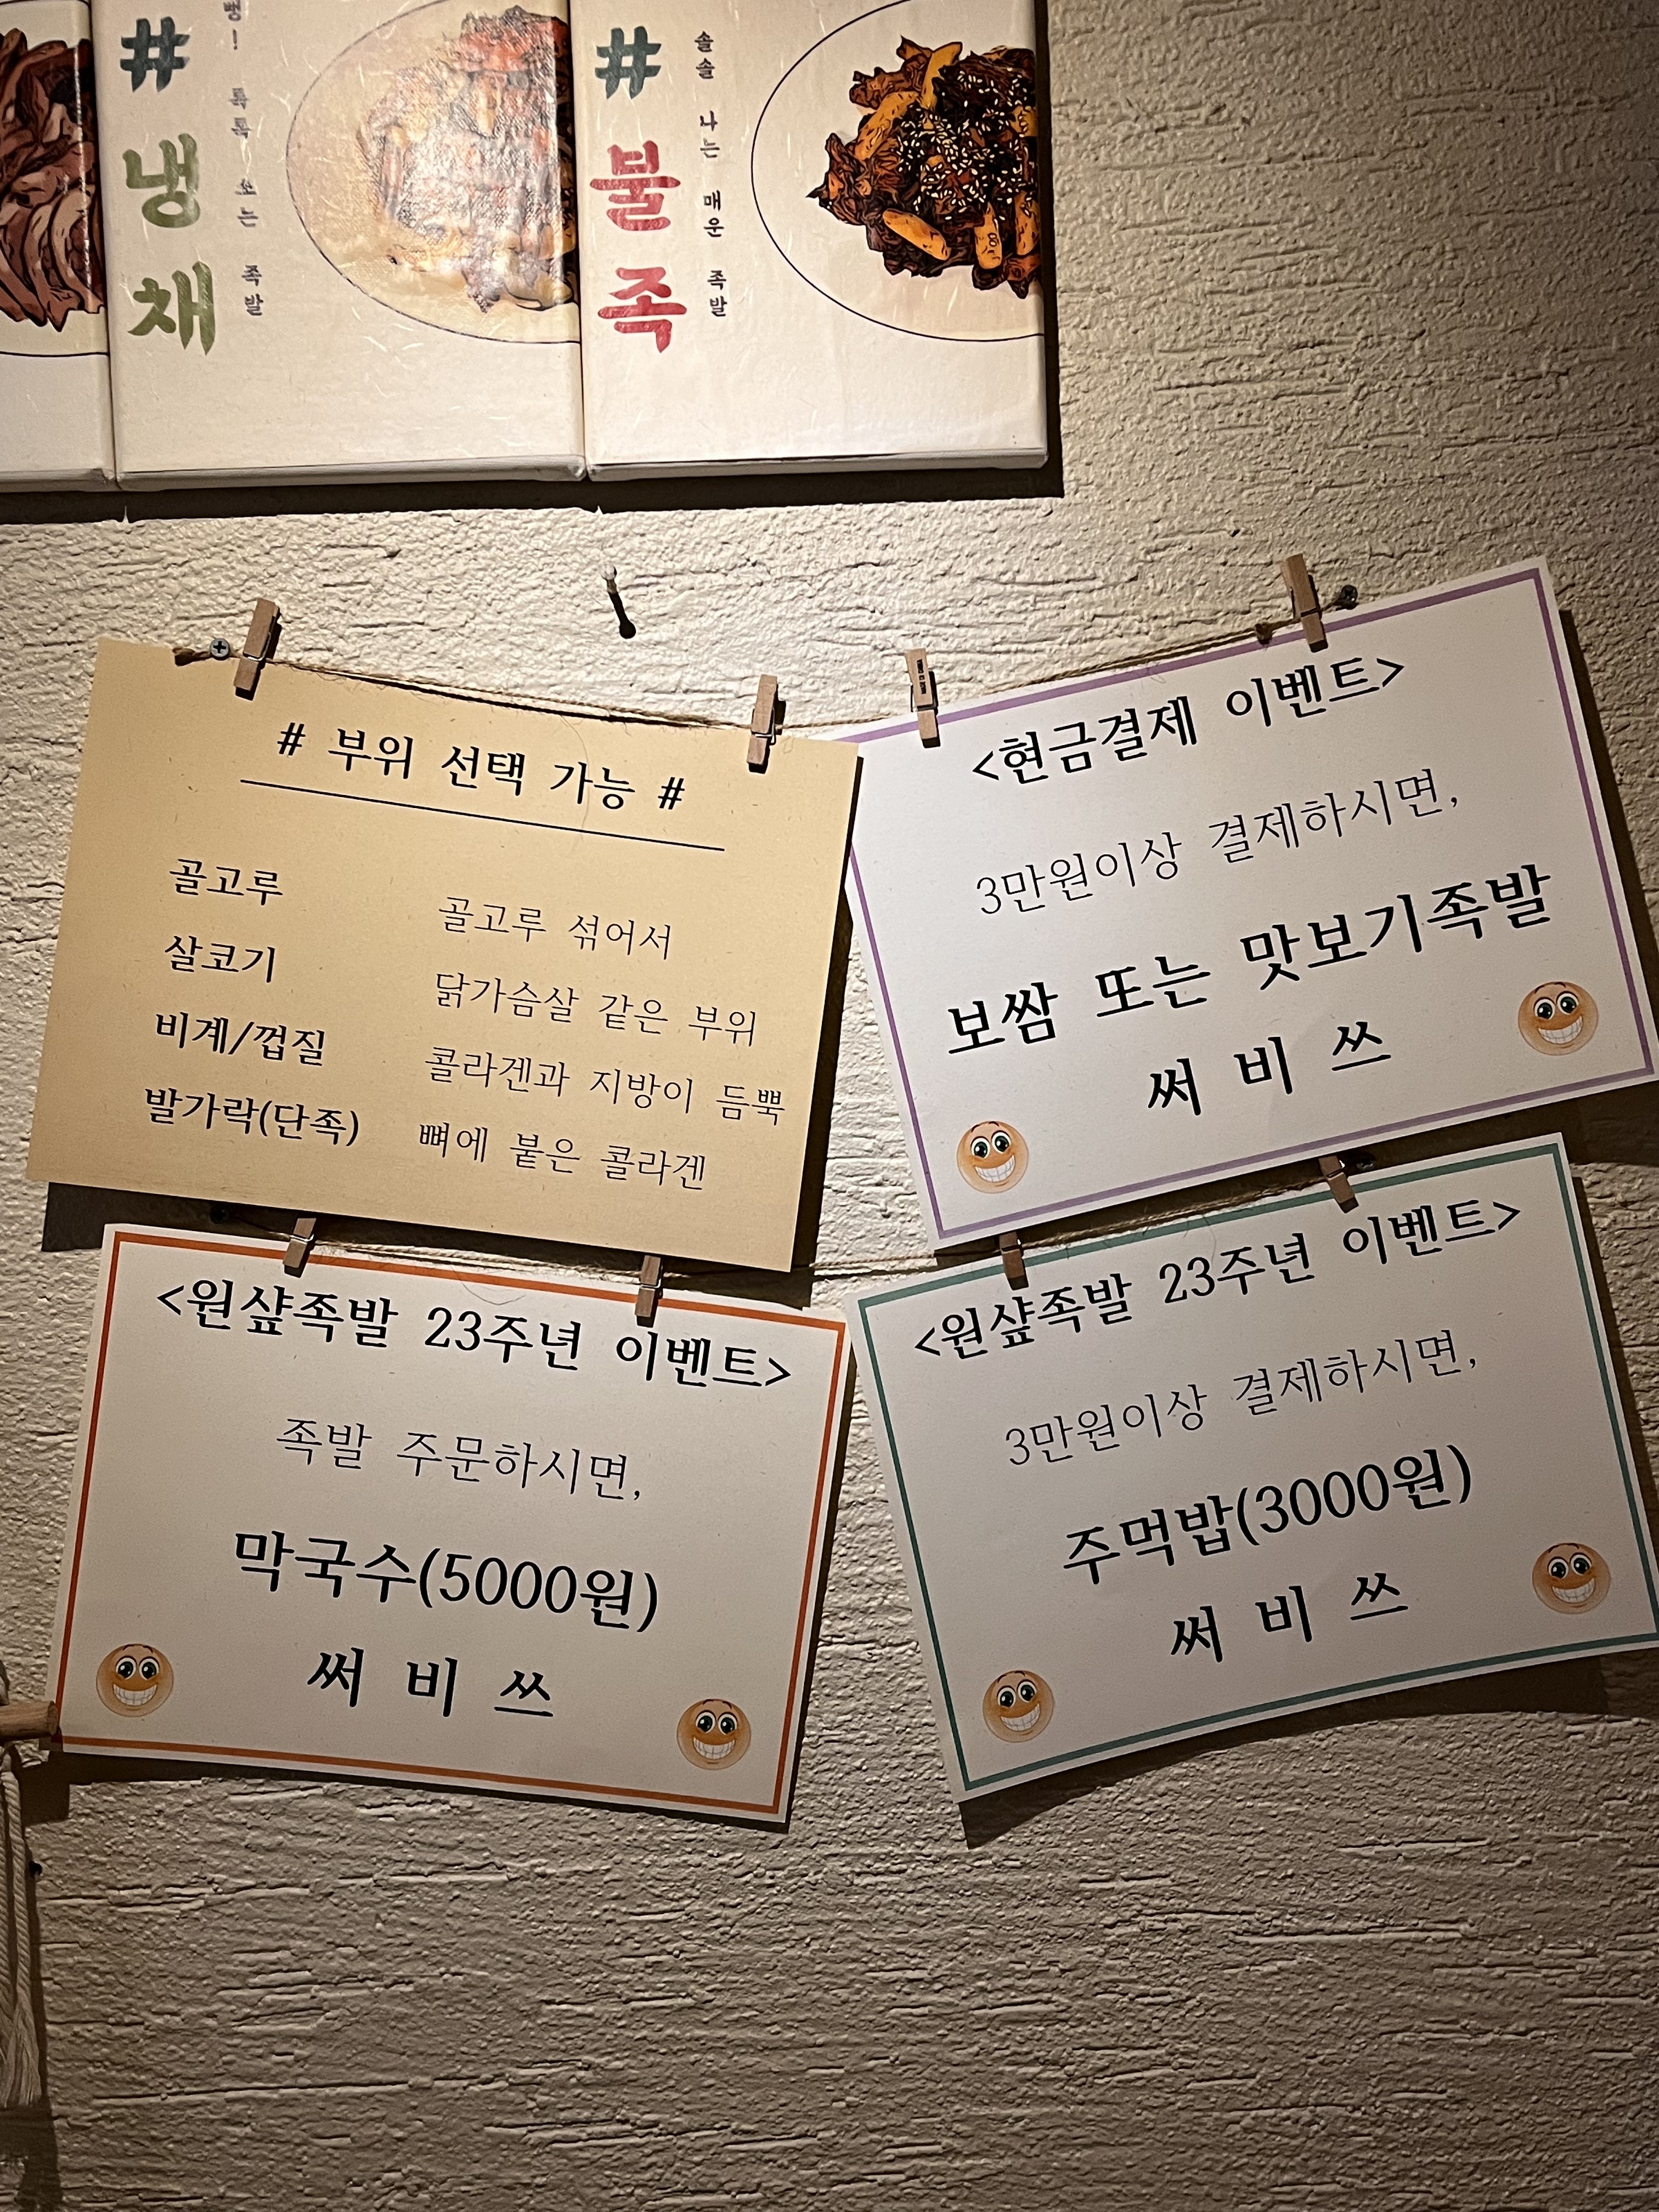 #
냉
채
뻥! 톡톡 쏘는 족발
#
불
족
솔솔 나는 매운 족발
# 부위 선택 가능 #
골고루 골고루 섞어서
살코기 닭가슴살 같은 부위
비계/껍질 콜라겐과 지방이 듬뿍
발가락(단족) 뼈에 붙은 콜라겐
<현금결제 이벤트>
3만원이상 결제하시면,
보쌈 또는 맛보기족발
써 비 쓰
<원샾족발 23주년 이벤트>
족발 주문하시면,
막국수(5000원)
써 비 쓰
<원샾족발 23주년 이벤트>
3만원이상 결제하시면,
주먹밥(3000원)
써 비 쓰